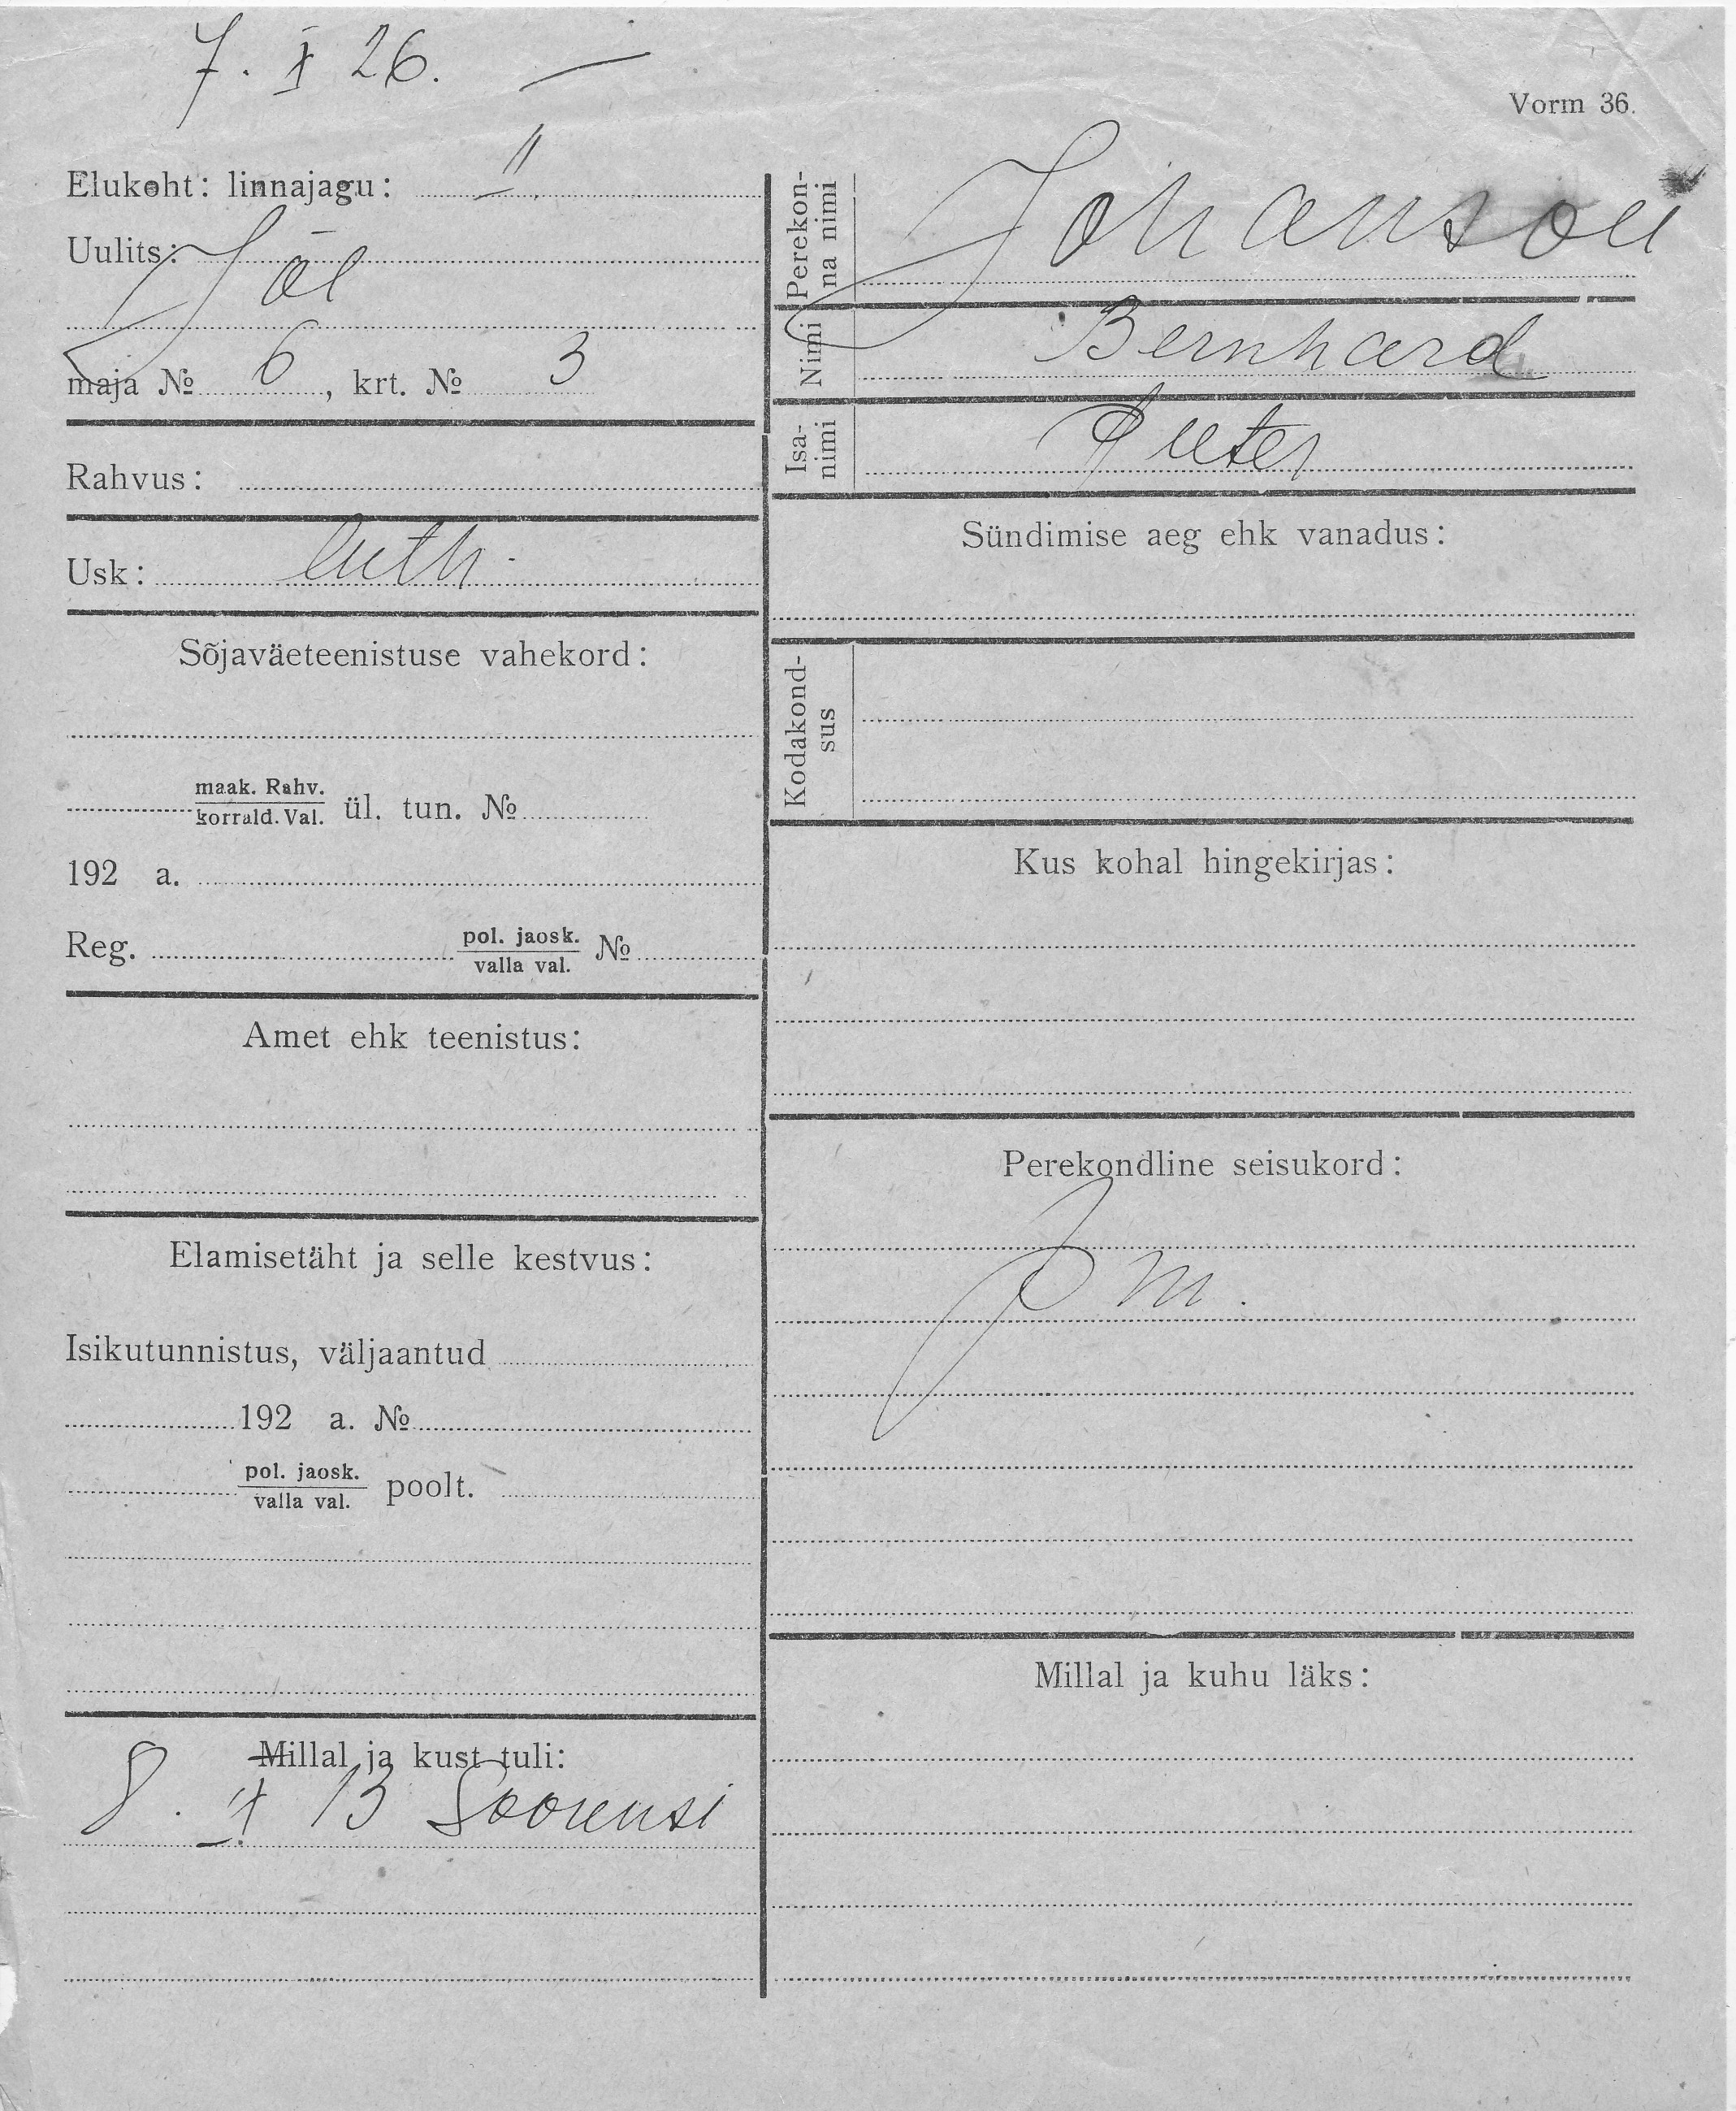 7. X 26. —
Vorm 36.
Elukoht: linnajagu: II
Uulits: Jõe
maja № 6, krt. № 3
Rahvus:
Usk: luth.
Sõjaväeteenistuse vahekord:
maak. Rahv.
korrald. Val. ül. tun. №
192 a.
Reg. pol. jaosk.
valla val. №
Amet ehk teenistus:
Elamisetäht ja selle kestvus:
Isikutunnistus, väljaantud
192 a. №
pol. jaosk.
valla val. poolt.
Millal ja kust tuli:
8. 13
Perekon-
na nimi Johanson
Nimi Bernhard
Isa-
nimi Peeter
Sündimise aeg ehk vanadus:
Kodakond-
sus
Kus kohal hingekirjas:
Perekondline seisukord:
Millal ja kuhu läks: